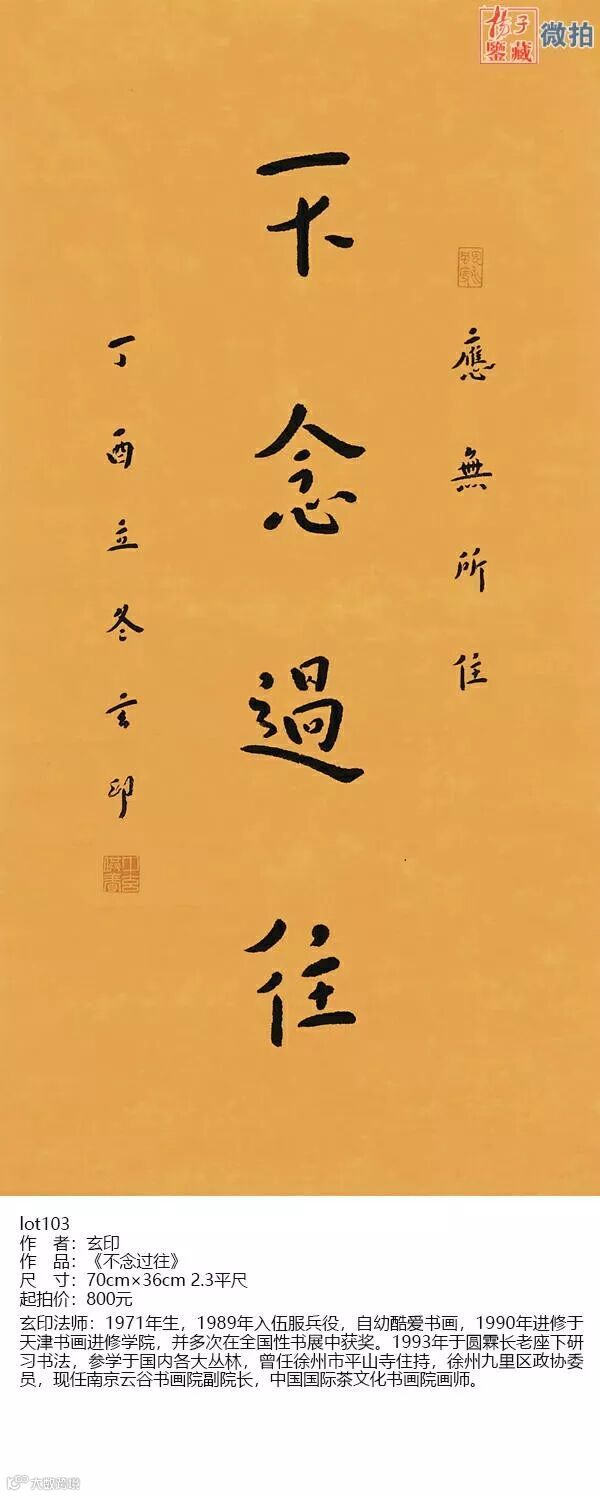 子 微拍
鑒藏
應無所住
不念過往
丁酉立冬玄印
lot103
作 者：玄印
作 品：《不念过往》
尺 寸：70cm×36cm 2.3平尺
起拍价：800元
玄印法师：1971年生，1989年入伍服兵役，自幼酷爱书画，1990年进修于
天津书画进修学院，并多次在全国性书展中获奖。1993年于圆霖长老座下研
习书法，参学于国内各大丛林，曾任徐州市平山寺住持，徐州九里区政协委
员，现任南京云谷书画院副院长，中国国际茶文化书画院画师。
大数跨境